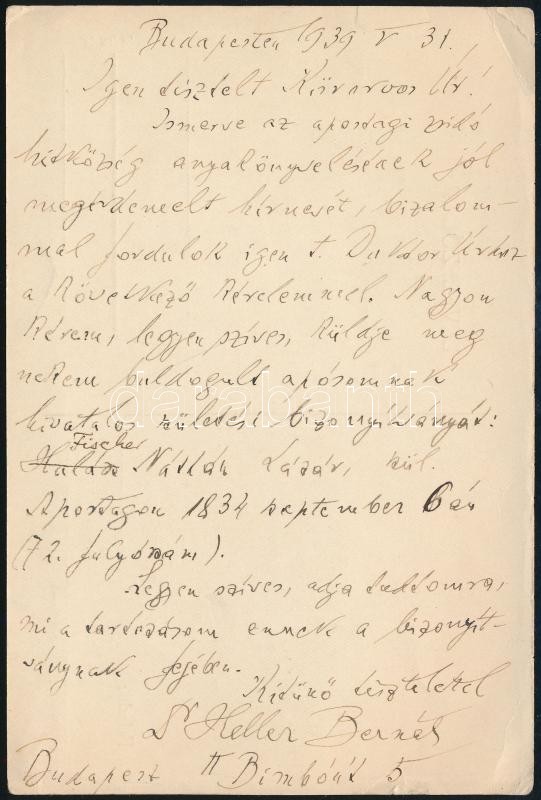 Budapesten 1939 V 31.
Igen tisztelt Körorvos Úr!
Ismerve az apostagi zsidó
hitközség anyakönyvelésének jól
megérdemelt hírnevét, bizalom-
mal fordulok igen t. Doktor Úrhoz
a következő kérelemmel. Nagyon
kérem, legyen szíves, küldje meg
nekem boldogult apósomnak
hivatalos születési bizonyítványát:
Fischer
Nátán Lázár, szül.
Apostagon 1834 september 6 án
(72. folyószám).
Legyen szíves, adja tudtomra,
mi a tartozásom ennek a bizonyít-
ványnak fejében.
Kitünő tisztelettel
Dr Heller Bernát
Budapest II Bimbóút 5
darabanth